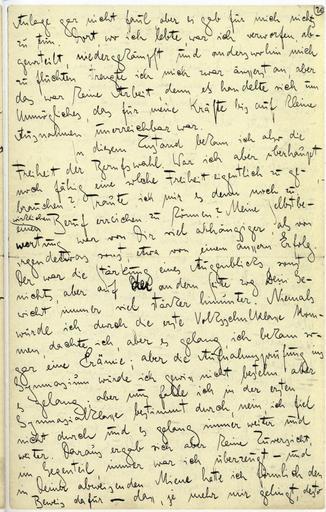 28
Anlage gar nicht faul aber es gab für mich nichts
zu tun. Dort wo ich lebte, war ich verworfen, ab-
geurteilt, niedergekämpft und anderswohin mich
zu flüchten strengte ich mich zwar äusserst an, aber
das war keine Arbeit denn es handelte sich um
Unmögliches das für meine Kräfte bis auf kleine
Ausnahmen unerreichbar war.
In diesem Zustand bekam ich also die
Freiheit der Berufswahl. War ich aber überhaupt
noch fähig eine solche Freiheit eigentlich zu ge-
brauchen? Traute ich mir es denn noch zu
wirklichen
einen Beruf erreichen zu können? Meine Selbstbe-
wertung war von Dir viel abhängiger als von
irgendetwas sonst, etwa von einem äussern Erfolg.
Der war die Stärkung eines Augenblicks, sonst
nichts, aber auf der andern Seite zog Dein Ge-
wicht immer viel stärker hinunter. Niemals
würde ich durch die erste Volksschulklasse kom-
men, dachte ich, aber es gelang, ich bekam so-
gar eine Prämie; aber die Aufnahmsprüfung ins
Gymnasium würde ich gewiss nicht bestehn, aber
es gelang; aber nun falle ich in der ersten
Gymnasialklasse bestimmt durch, nein ich fiel
nicht durch und es gelang immer weiter und
weiter. Daraus ergab sich aber keine Zuversicht,
im Gegenteil immer war ich überzeugt – und
in Deiner abweisenden Miene hatte ich förmlich den
Beweis dafür – dass, je mehr mir gelingt, desto